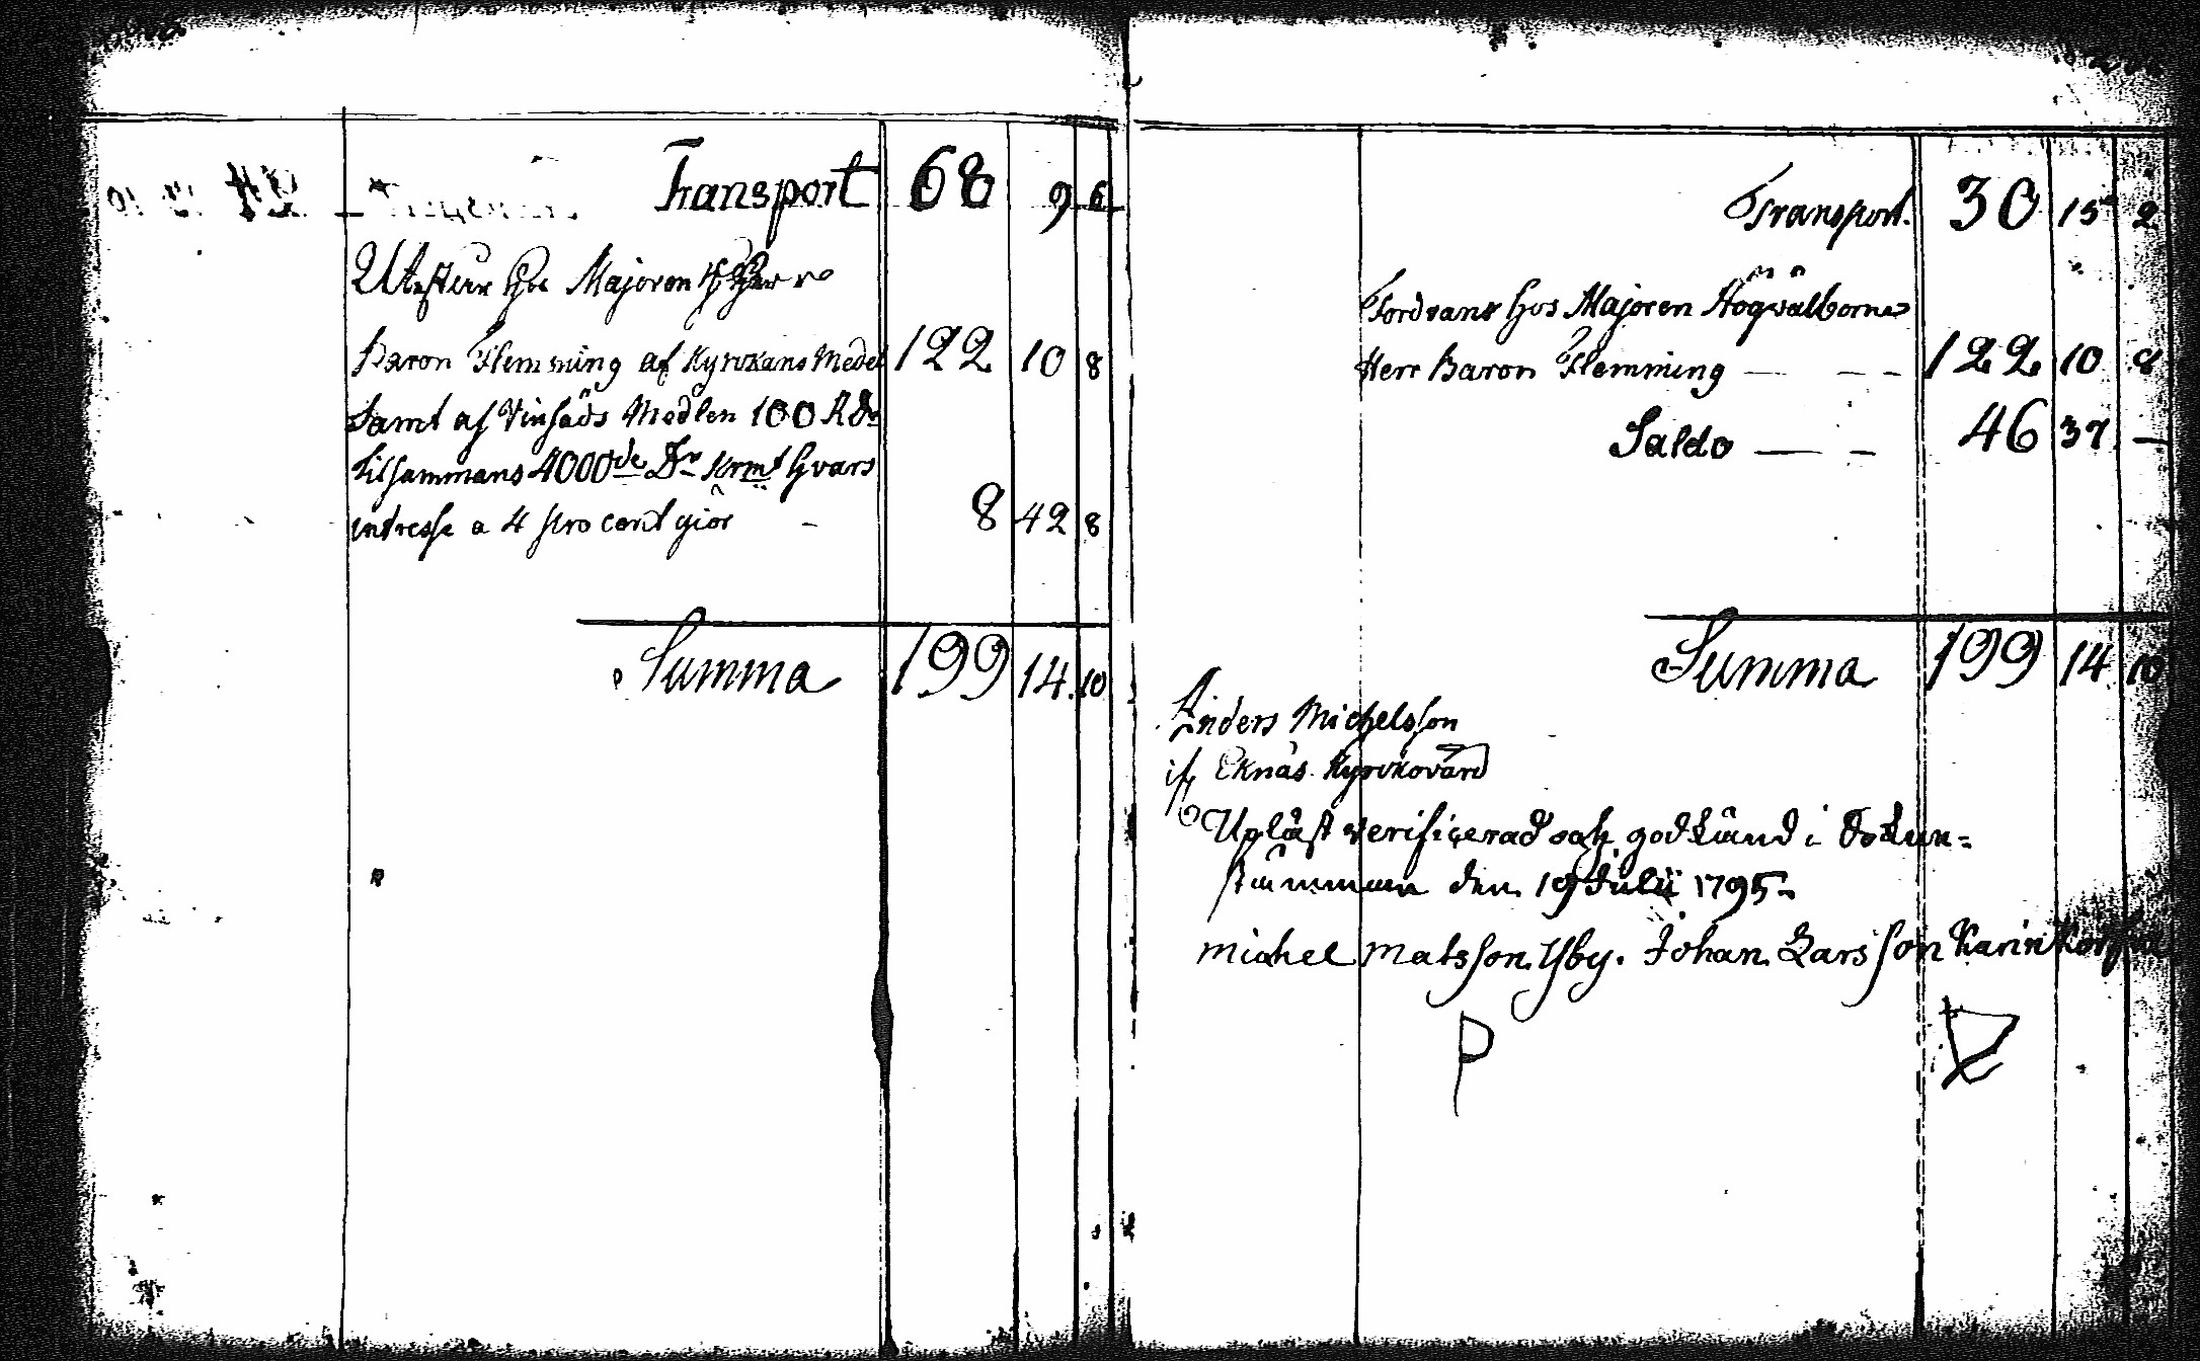 Transport 68 9 6
Utestår hos Majoren H Herr
Baron Flemming af Kyrckans Medel 122 10 8
Samt af Vinsäds Medlen 100 Rdr
tilsammans 4000de Dr Krmt hvars
intresse a 4 pro cent giör - 8 42 8
Summa 199 14. 10
Transport. 30 15 2
Fordrans hos Majoren Högvälborne
Herr Baron Flemming — — - 122 10 8
Saldo — - 46 37 —
Summa 199 14 10
Anders Michelsson
if Eknäs Kyrckovärd
Upläst verificerad och godkänd i Sockne=
stämman den 19 Julii 1795.
michel matsson Ysby. Johan Larsson
P